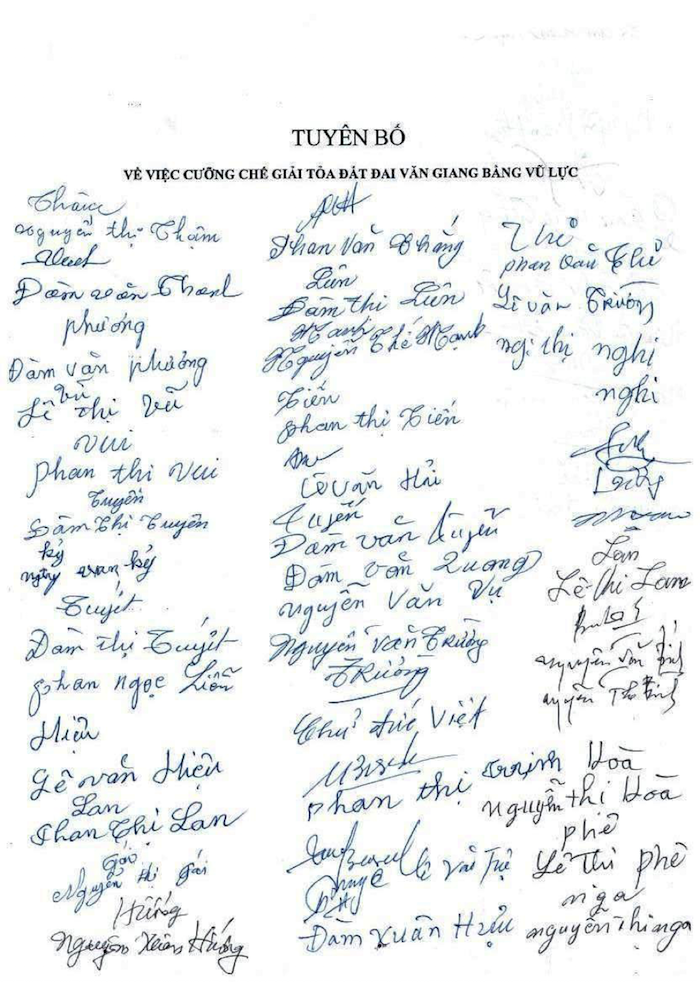 TUYÊN BỐ
VỀ VIỆC CƯỠNG CHẾ GIẢI TỎA ĐẤT ĐAI VĂN GIANG BẰNG VŨ LỰC
Nguyễn thị Thậm
Đàm văn Thanh
phương
Đàm văn phương
vũ
Lê thị vũ
vui
phan thi vui
Tuyền
Đàm Thị Tuyền
kỷ
kỷ
Tuyết
Đàm thị Tuyết
phan ngọc Liễn
Hiệu
Lê văn Hiệu
Lan
Phan Thị Lan
gái
Nguyễn thị gái
Hướng
Nguyễn Xuân Hướng
Phan Văn Thắng
Liên
Đàm thi Liên
Mạnh
Nguyễn Thế Mạnh
Tiến
phan thị Tiến
Lê văn Hải
Đàm văn
Đàm văn Quang
nguyễn văn Vụ
Nguyễn văn Trường
Trường
Chử đức Việt
phan thị
Đàm Xuân Hựu
Thể
phan văn Thể
Lê văn Trường
thị nghi
nghi
Lan
Lê thi Lan
nguyễn văn
nguyễn
Hoà
nguyễn thị Hoà
phê
Lê Thi phê
nga
nguyễn thị nga